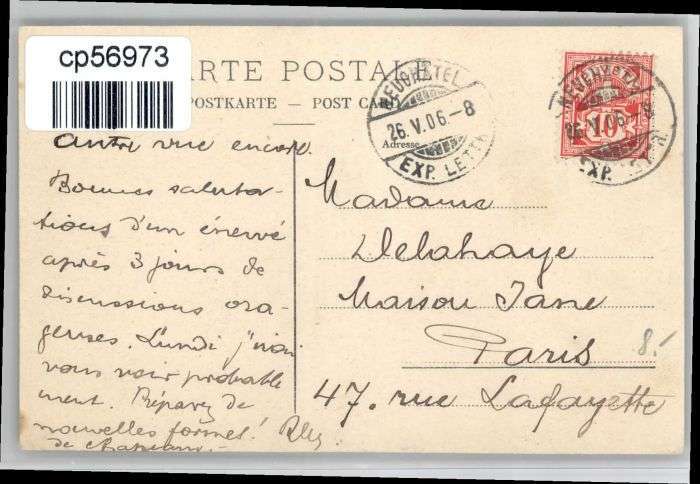 cp56973
CARTE POSTALE
POSTKARTE — POST CARD
NEUCHATEL
26.V.06.-8
EXP. LETTR.
NEUCHATEL
26.V.06.-8
EXP. LETTR.
10
Adresse
Autre vue encore.
Bonnes saluta-
tions d'un énervé
après 3 jours de
discussions ora-
geuses. Lundi j'irai
vous voir probable
ment. Réparez de
nouvelles formes!
de chapeaux.-
Madame
Delahaye
Maison Jane
Paris
47. rue Lafayette
8.-